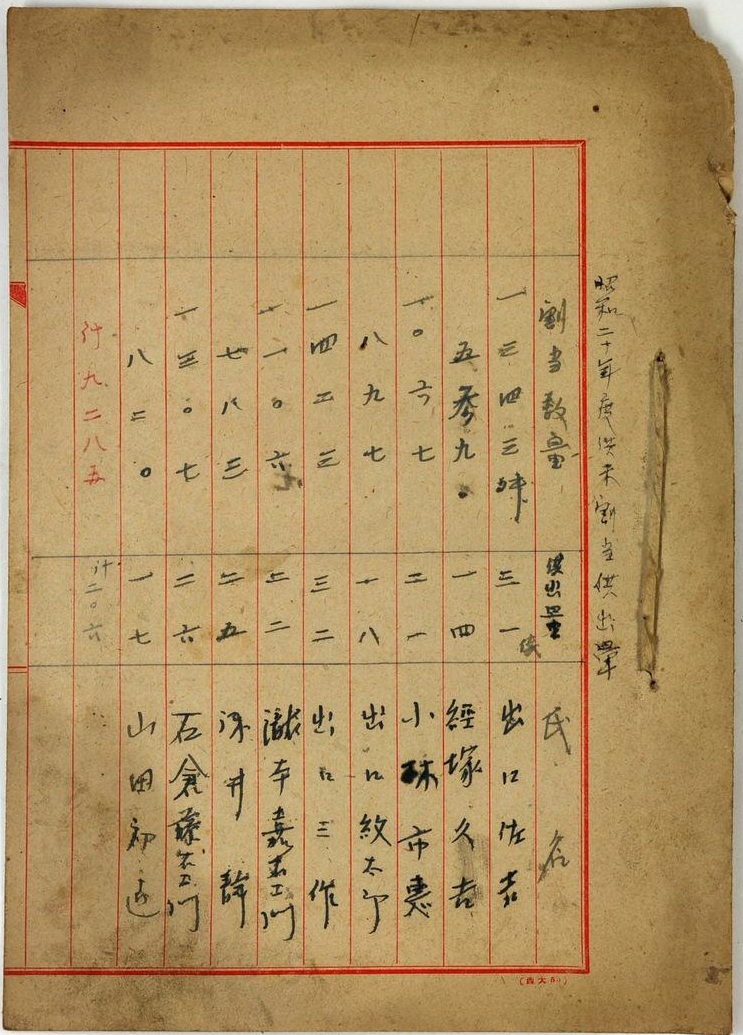 昭和二十年度供米割当供出量
割当数量 供出量 氏名
一三四三 三一俵 出口佐吉
五参九〇 一四 經塚久吉
一〇六七 二一 小林市恵
八九七 一八 出口紋太郎
一四二三 三二 出口三作
一一〇六 二二 瀧本嘉右エ門
七八三 二五 井
一三〇七 二六 石倉藤右エ門
八二〇 一七 山田初
計九二八五 計二〇六